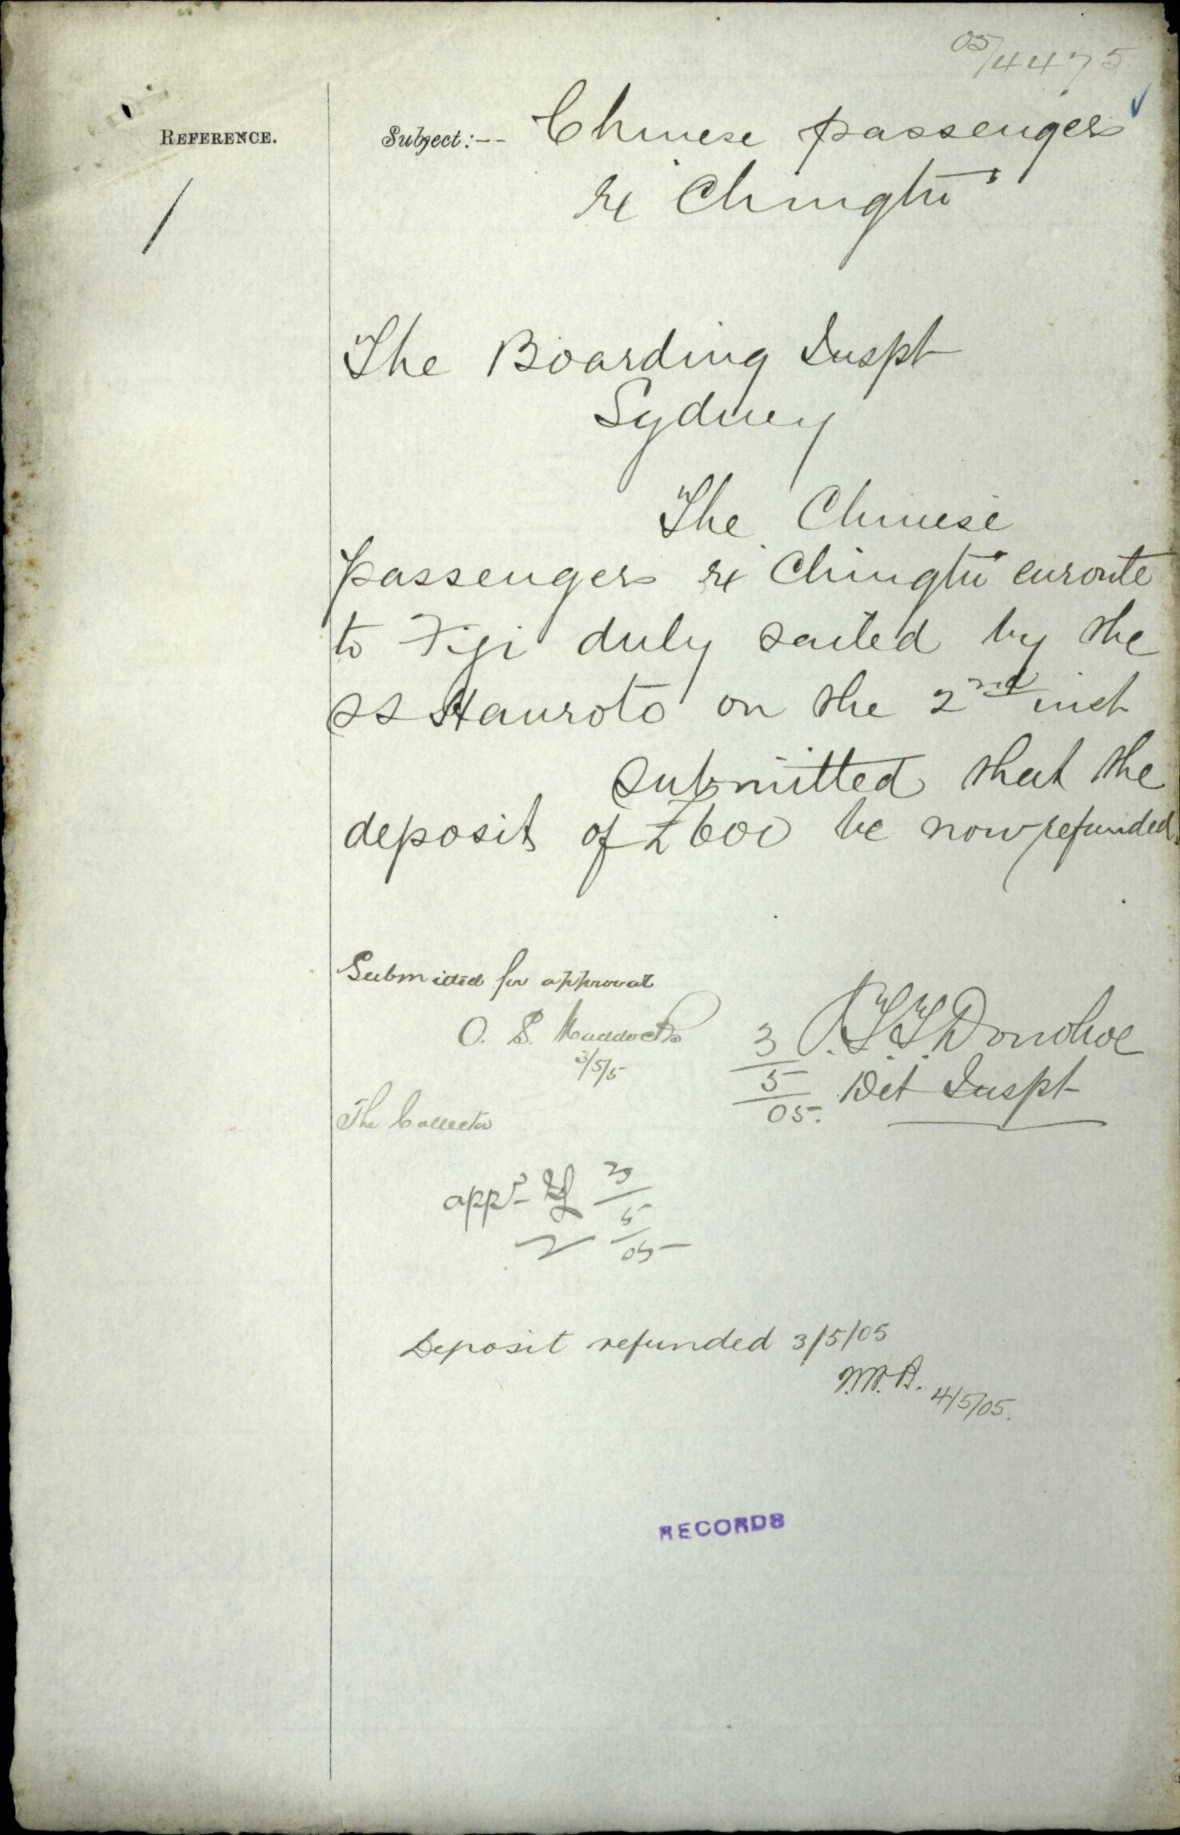 05/4475
REFERENCE.
Subject:-- Chinese passengers
ex "Chingtu"
The Boarding Inspt
Sydney
The Chinese
passengers ex "Chingtu" enroute
to Fiji duly sailed by the
SS Hauroto on the 2nd inst
submitted that the
deposit of £600 be now refunded.
Submitted for approval
O. S. Maddocks
3/5/5
J.T.T. Donohoe
Det Inspt
3/5/05.
The Collector
appd
3/5/05
Deposit refunded 3/5/05
4/5/05.
RECORDS